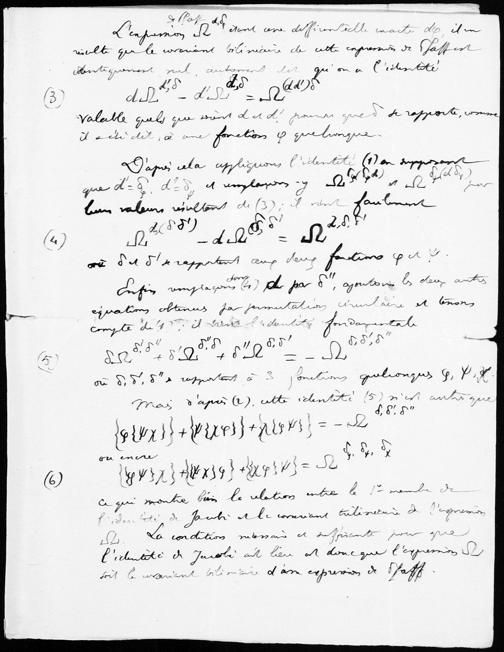 de Pfaff
L'expression Ω^{d,δ} étant une différentielle exacte dφ, il en
résulte que le covariant bilinéaire de cette expression de Pfaff est
identiquement nul, autrement dit qu'on a l'identité
(3) dΩ^{d',δ} - d'Ω^{d,δ} = Ω^{(dd')δ}
valable quels que soient d et d' pourvu que δ se rapporte, comme
il a été dit, à une fonction φ quelconque.
D'après cela appliquons l'identité (1) en supposant
que d' = δ_φ d'' = δ_ψ et remplaçons-y Ω et Ω par
leurs valeurs résultant de (3); il vient facilement
(4) Ω^{d,(δδ')} - dΩ^{δ,δ'} = Ω^{d,δ,δ'}
où δ et δ' se rapportent aux deux fonctions φ et ψ.
Enfin remplaçons dans (4) d par δ'', ajoutons les deux autres
équations obtenues par permutation circulaire et tenons
compte de ; il vient l'identité fondamentale
(5) δΩ^{δ',δ''} + δ'Ω^{δ'',δ} + δ''Ω^{δ,δ'} = - Ω^{δ,δ',δ''}
où δ, δ', δ'' se rapportent à 3 fonctions quelconques φ, ψ, χ.
Mais d'après (2), cette identité (5) n'est autre que
{φ{ψχ}} + {ψ{χφ}} + {χ{φψ}} = - Ω^{δ,δ',δ''}
ou encore
(6) {φ{ψχ}} + {ψ{χφ}} + {χ{φψ}} = Ω^{δ_φ, δ_ψ, δ_χ}
ce qui montre bien la relation entre le 1er membre de
l'identité de Jacobi et le covariant trilinéaire de l'expression
Ω. La condition nécessaire et suffisante pour que
l'identité de Jacobi ait lieu est donc que l'expression Ω
soit le covariant bilinéaire d'une expression de Pfaff.